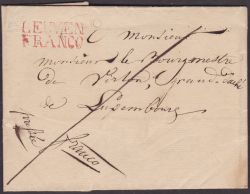 LEUVEN
FRANCO
Monsieur
monsieur le Bourgmestre
de Virton, Grand
de Luxembourg
franco